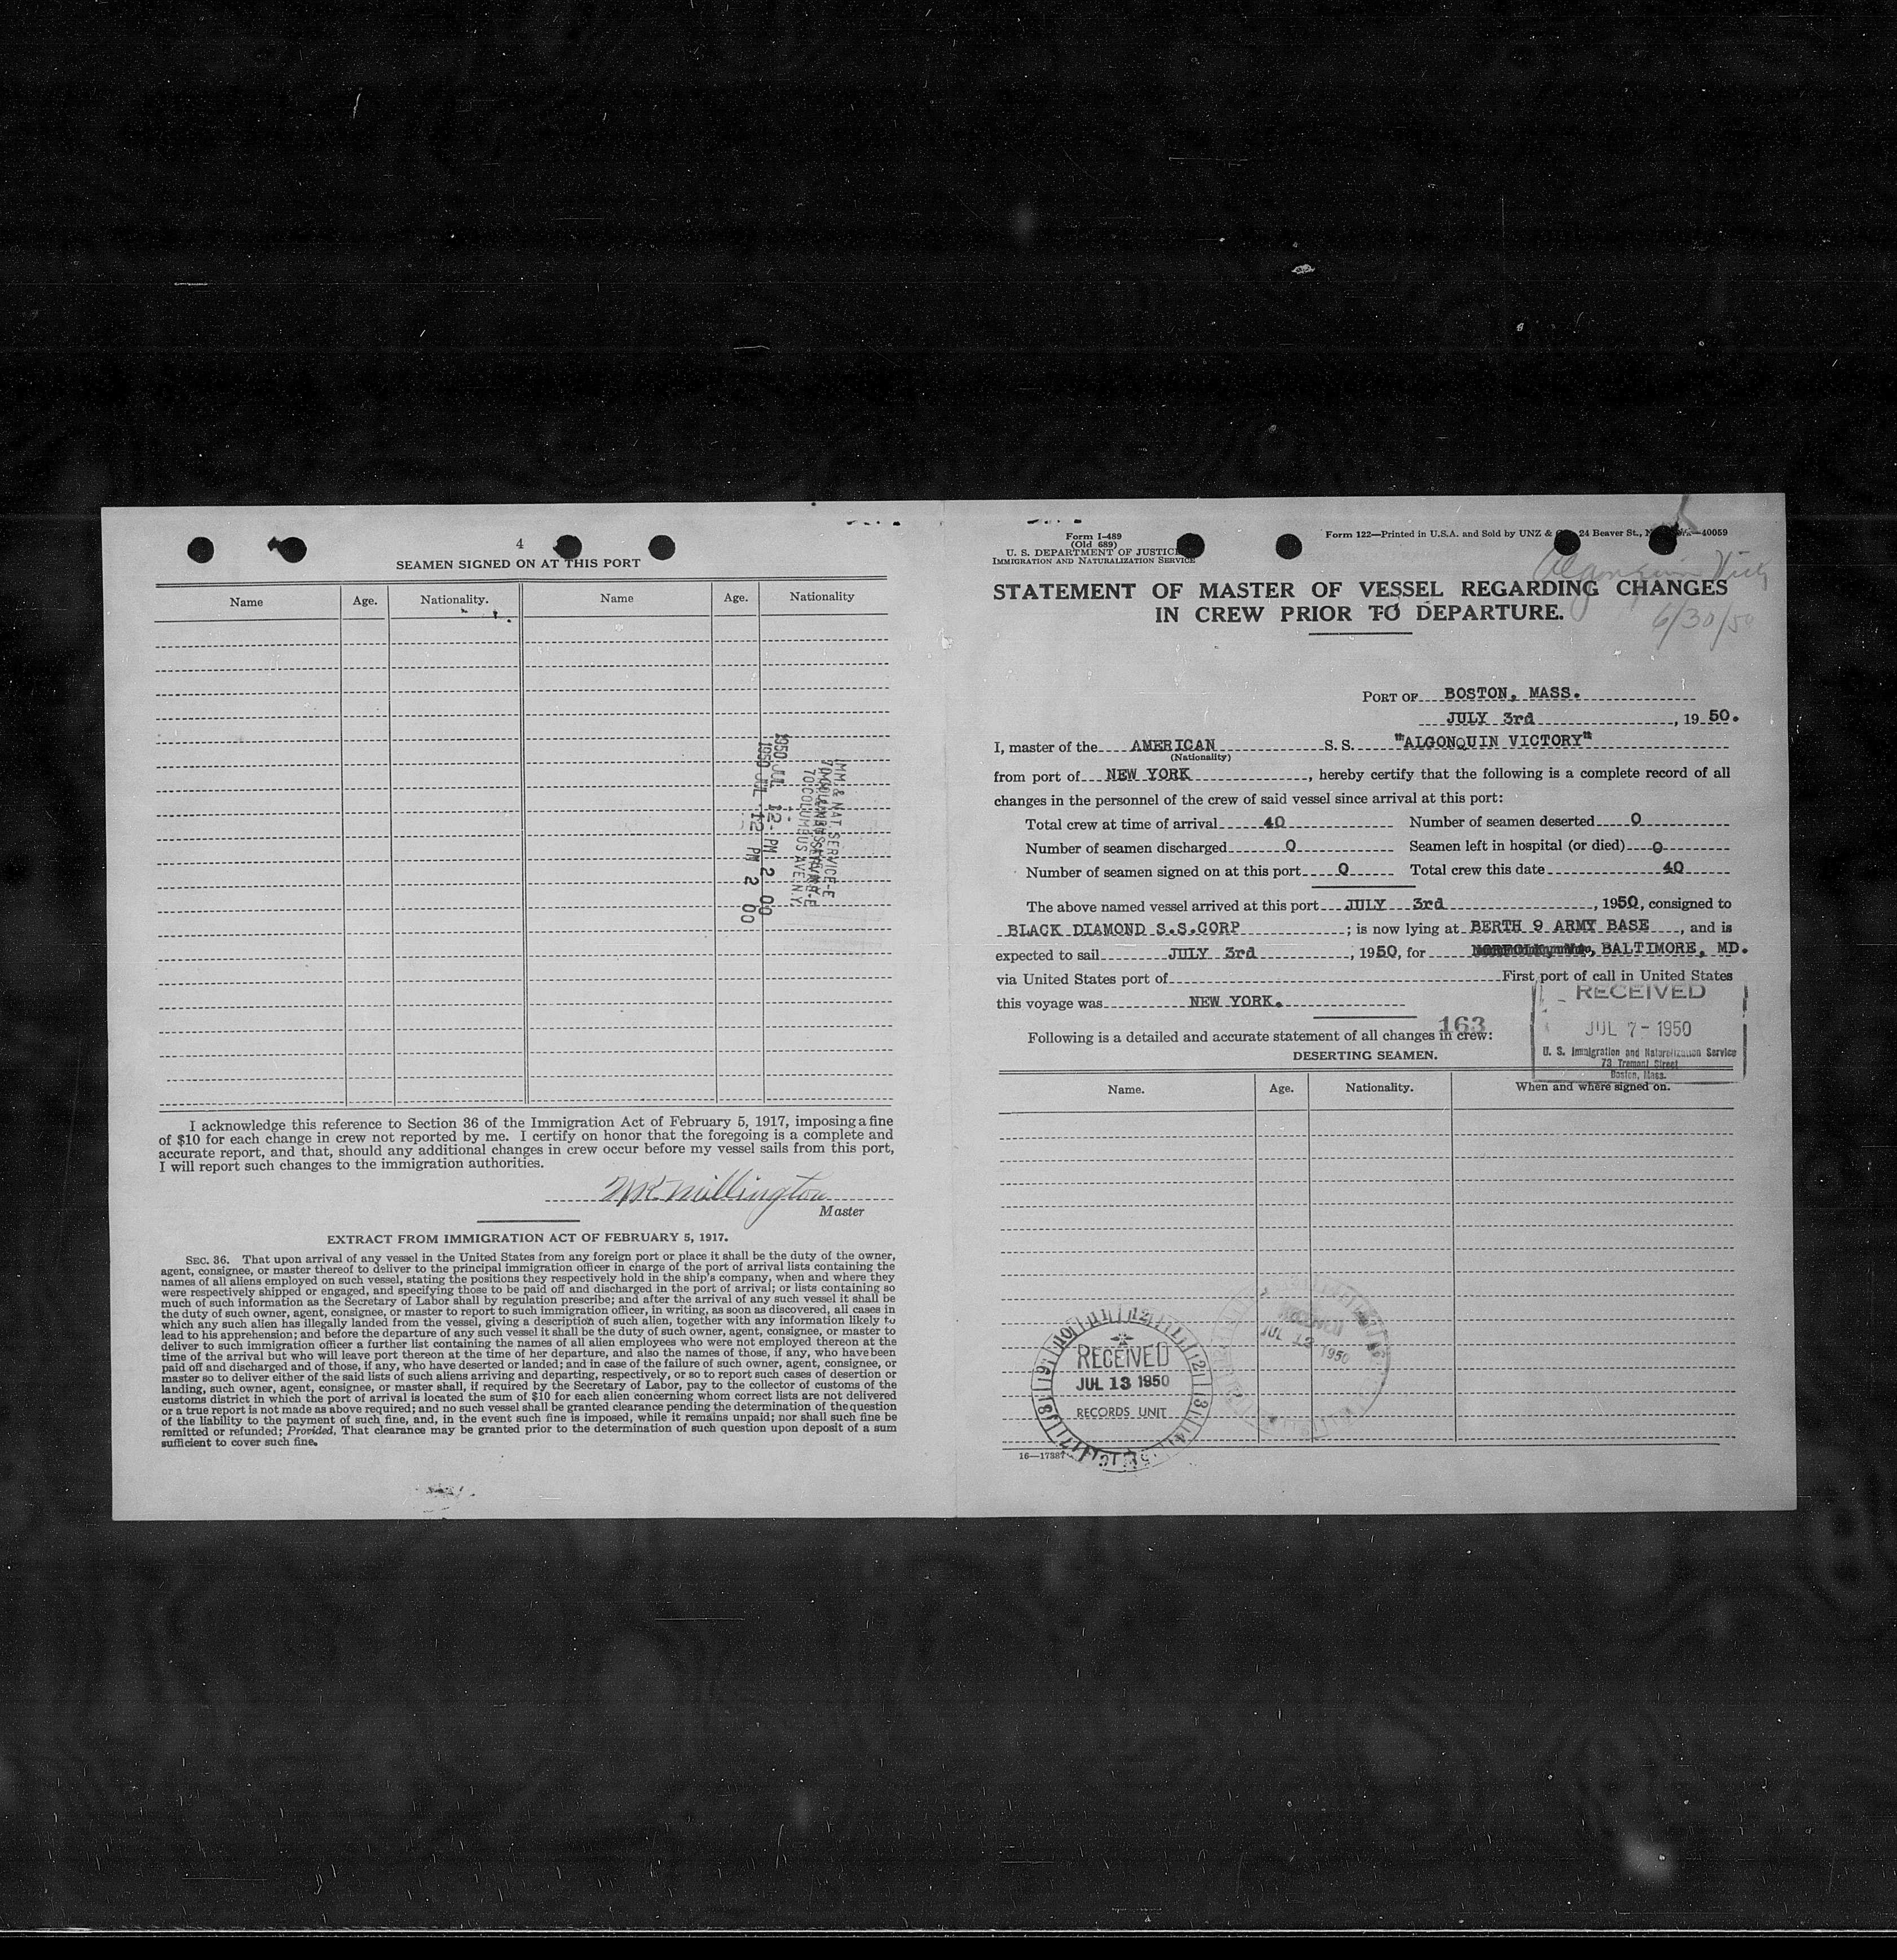 4
SEAMEN SIGNED ON AT THIS PORT
Name Age. Nationality. Name Age. Nationality
1950 JUL 12 PM 2 00
1950 JUL 12 PM 2 00
IMM & NAT. SERVICE-E
70 COLUMBUS AVE. N.Y.
I acknowledge this reference to Section 36 of the Immigration Act of February 5, 1917, imposing a fine
of $10 for each change in crew not reported by me. I certify on honor that the foregoing is a complete and
accurate report, and that, should any additional changes in crew occur before my vessel sails from this port,
I will report such changes to the immigration authorities.
Millington
Master
EXTRACT FROM IMMIGRATION ACT OF FEBRUARY 5, 1917.
SEC. 36. That upon arrival of any vessel in the United States from any foreign port or place it shall be the duty of the owner,
agent, consignee, or master thereof to deliver to the principal immigration officer in charge of the port of arrival lists containing the
names of all aliens employed on such vessel, stating the positions they respectively hold in the ship's company, when and where they
were respectively shipped or engaged, and specifying those to be paid off and discharged in the port of arrival; or lists containing so
much of such information as the Secretary of Labor shall by regulation prescribe; and after the arrival of any such vessel it shall be
the duty of such owner, agent, consignee, or master to report to such immigration officer, in writing, as soon as discovered, all cases in
which any such alien has illegally landed from the vessel, giving a description of such alien, together with any information likely to
lead to his apprehension; and before the departure of any such vessel it shall be the duty of such owner, agent, consignee, or master to
deliver to such immigration officer a further list containing the names of all alien employees who were not employed thereon at the
time of the arrival but who will leave port thereon at the time of her departure, and also the names of those, if any, who have been
paid off and discharged and of those, if any, who have deserted or landed; and in case of the failure of such owner, agent, consignee, or
master so to deliver either of the said lists of such aliens arriving and departing, respectively, or so to report such cases of desertion or
landing, such owner, agent, consignee, or master shall, if required by the Secretary of Labor, pay to the collector of customs of the
customs district in which the port of arrival is located the sum of $10 for each alien concerning whom correct lists are not delivered
or a true report is not made as above required; and no such vessel shall be granted clearance pending the determination of the question
of the liability to the payment of such fine, and, in the event such fine is imposed, while it remains unpaid; nor shall such fine be
remitted or refunded; Provided, That clearance may be granted prior to the determination of such question upon deposit of a sum
sufficient to cover such fine.
Form I-489
(Old 689)
U. S. DEPARTMENT OF JUSTICE
IMMIGRATION AND NATURALIZATION SERVICE
Form 122—Printed in U.S.A. and Sold by UNZ & 24 Beaver St., —40059
Algonquin Vict
6/30/50
STATEMENT OF MASTER OF VESSEL REGARDING CHANGES
IN CREW PRIOR TO DEPARTURE.
PORT OF BOSTON, MASS.
JULY 3rd, 1950.
I, master of the AMERICAN S. S. "ALGONQUIN VICTORY"
(Nationality)
from port of NEW YORK, hereby certify that the following is a complete record of all
changes in the personnel of the crew of said vessel since arrival at this port:
Total crew at time of arrival 40 Number of seamen deserted 0
Number of seamen discharged 0 Seamen left in hospital (or died) 0
Number of seamen signed on at this port 0 Total crew this date 40
The above named vessel arrived at this port JULY 3rd, 1950, consigned to
BLACK DIAMOND S.S.CORP; is now lying at BERTH 9 ARMY BASE, and is
expected to sail JULY 3rd, 1950, for BALTIMORE, MD.
via United States port of First port of call in United States
this voyage was NEW YORK.
RECEIVED
JUL 7- 1950
U. S. Immigration and Naturalization Service
73 Tremont Street
Boston, Mass.
163
Following is a detailed and accurate statement of all changes in crew:
DESERTING SEAMEN.
Name. Age. Nationality. When and where signed on.
RECEIVED
JUL 13 1950
RECORDS UNIT
JUL 13 1950
16—17387